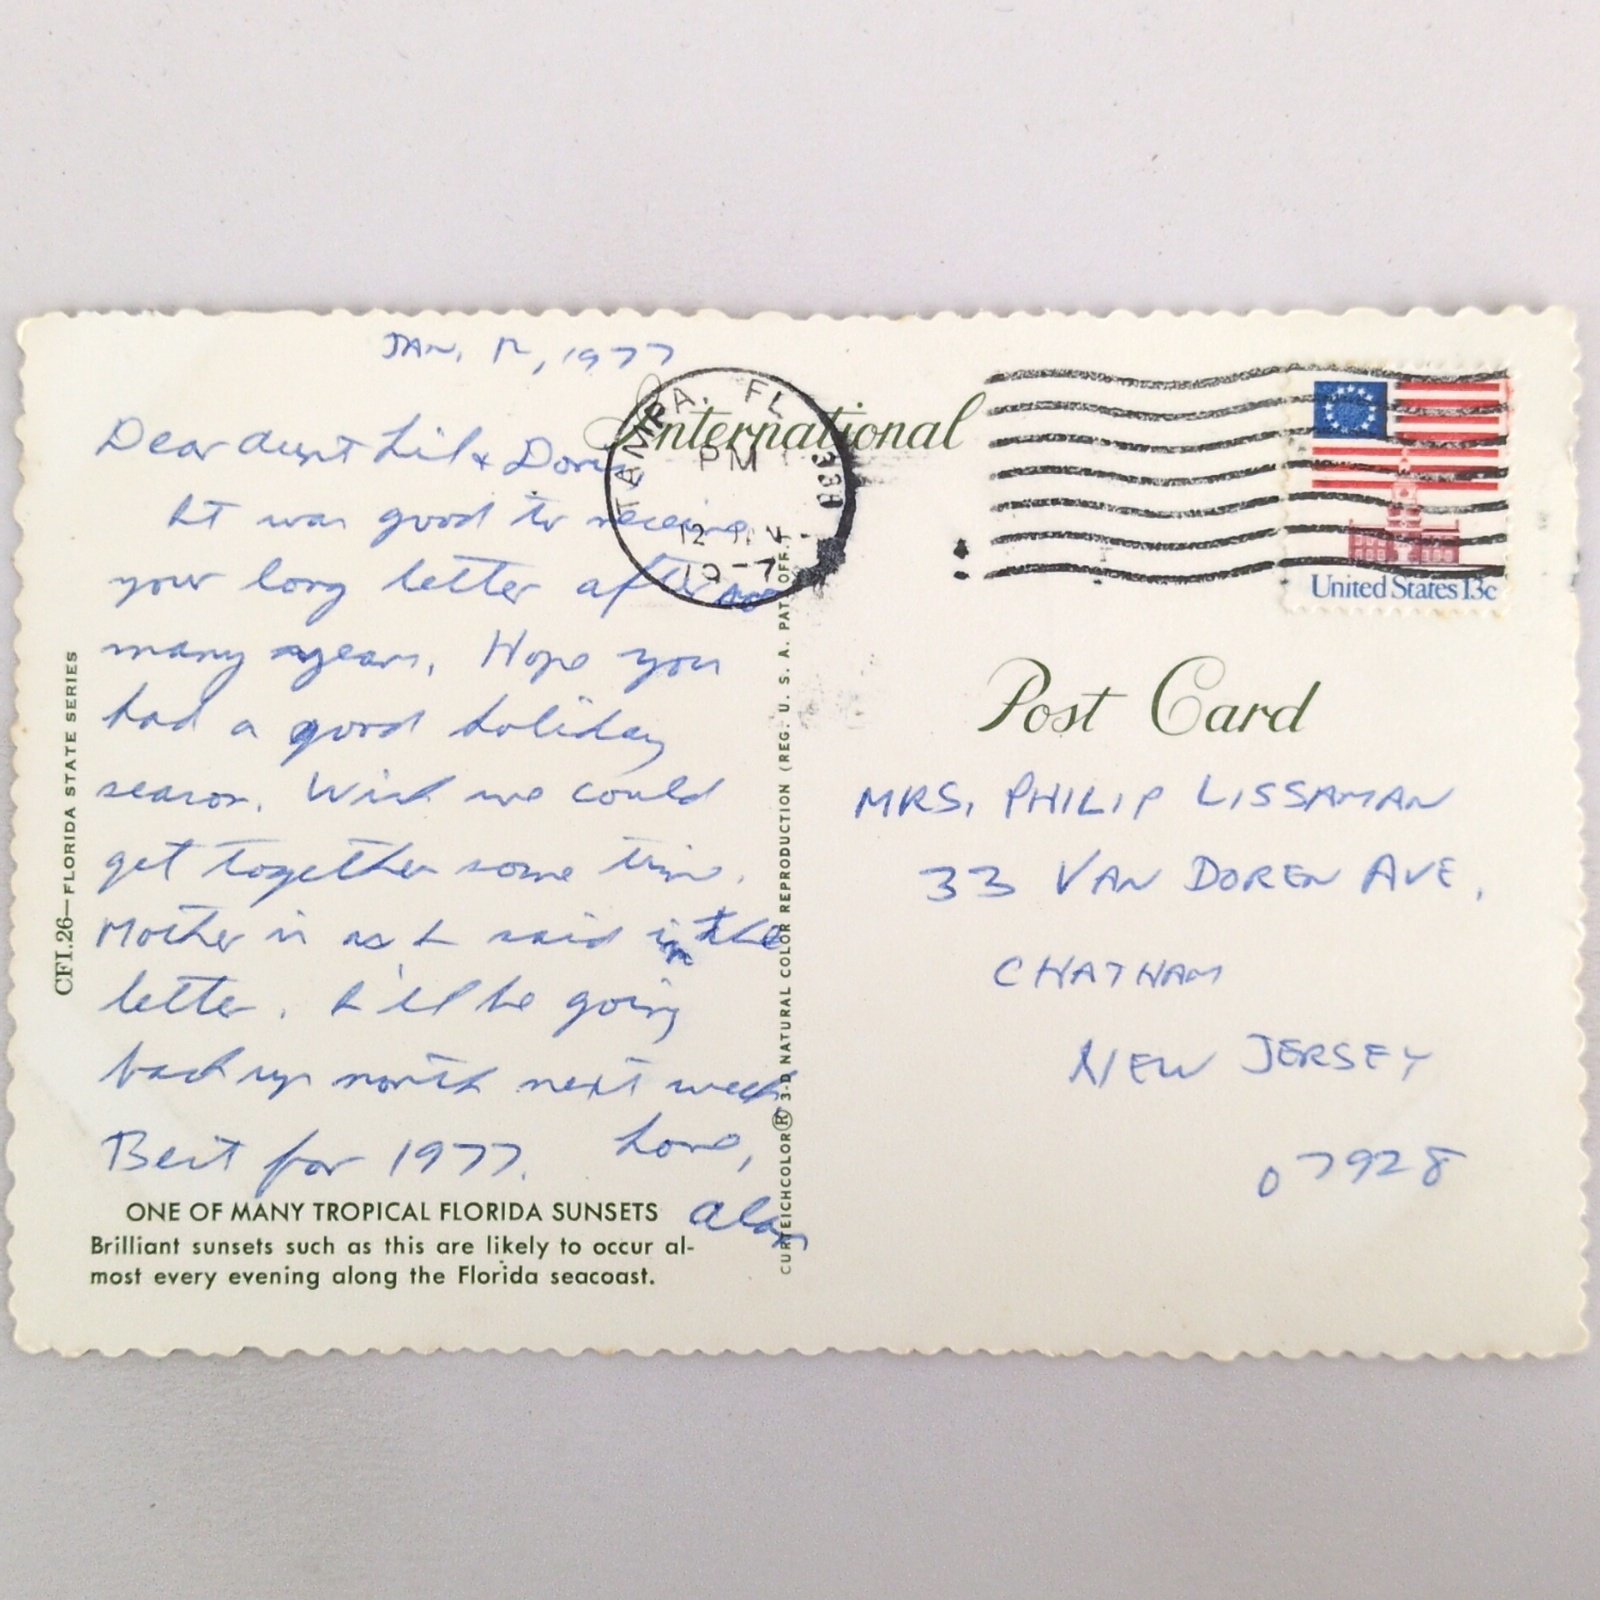 JAN. 12, 1977
Dear Aunt Lil & Doris
It was good to receive
your long letter after so
many years. Hope you
had a good holiday
season. Wish we could
get together some time.
Mother is as I said in the
letter. I'll be going
back up north next week
Best for 1977. Love,
Alan
ONE OF MANY TROPICAL FLORIDA SUNSETS
Brilliant sunsets such as this are likely to occur al-
most every evening along the Florida seacoast.
CFI.26—FLORIDA STATE SERIES
International
TAMPA, FL
PM
12
CURTEICHCOLOR® 3-D NATURAL COLOR REPRODUCTION (REG. U. S. A. PAT. OFF.)
United States 13c
Post Card
MRS. PHILIP LISSAMAN
33 VAN DOREN AVE.
CHATHAM
NEW JERSEY
07928